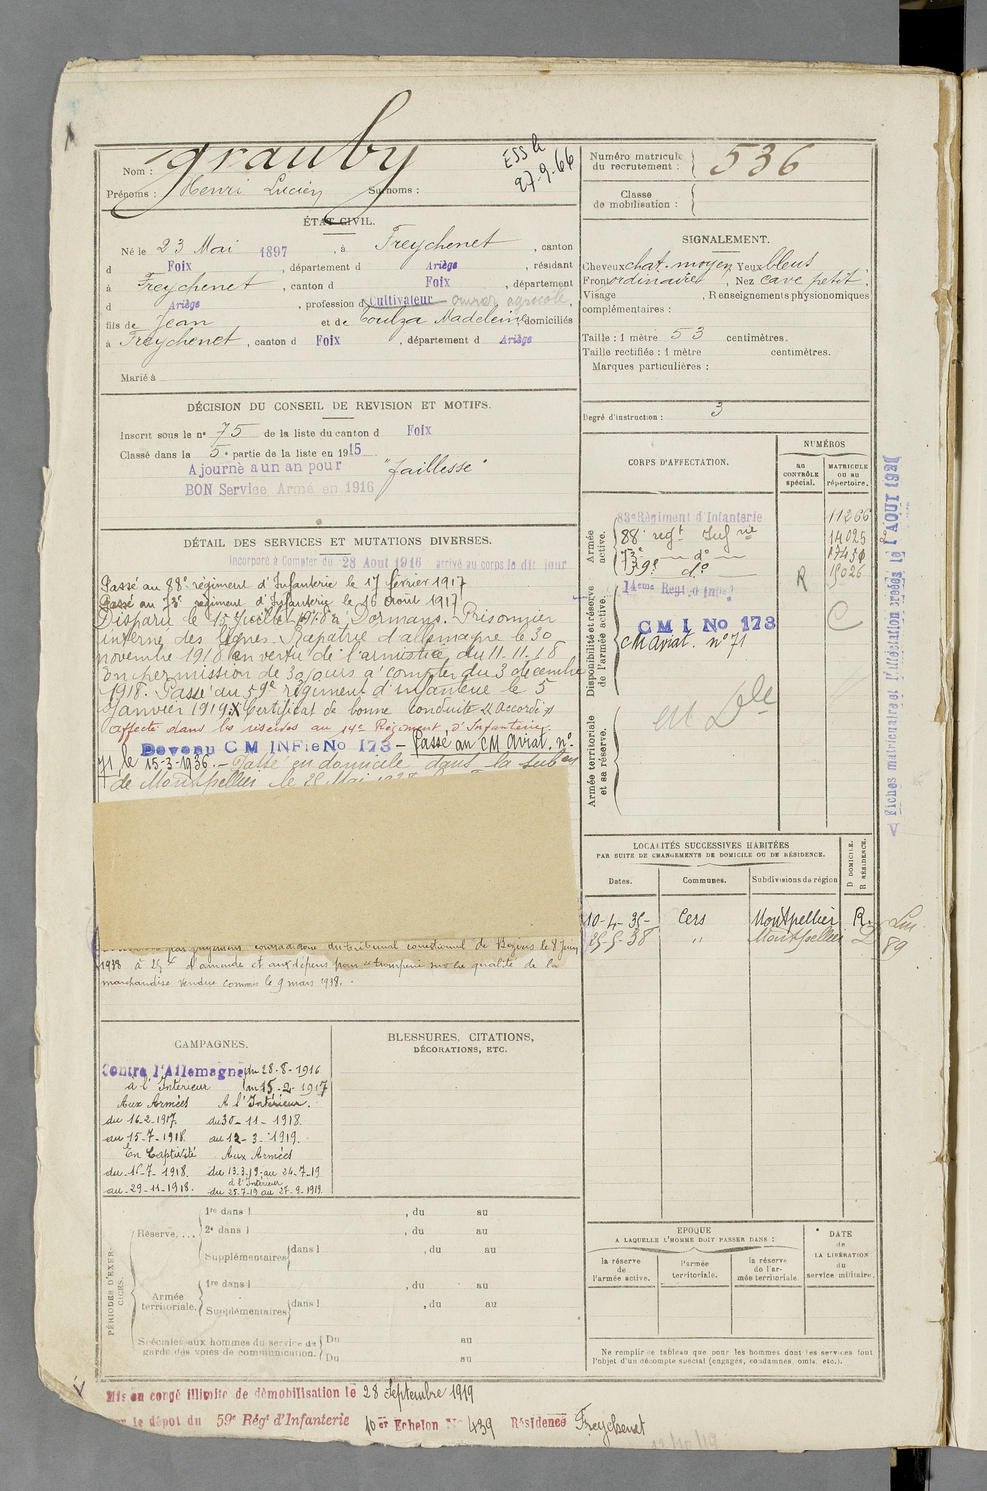 Nom : Grauby
ESS le
27-9-66
Prénoms : Henri Lucien Surnoms :
ÉTAT CIVIL.
Né le 23 Mai 1897, à Freychenet, canton
d Foix, département d Ariège, résidant
à Freychenet, canton d Foix, département
d Ariège, profession d Cultivateur ouvrier agricole,
fils de Jean et de Toulza Madeleine domiciliés
à Freychenet, canton d Foix, département d Ariège
Marié à
DÉCISION DU CONSEIL DE REVISION ET MOTIFS.
Inscrit sous le nº 75 de la liste du canton d Foix
Classé dans la 5e partie de la liste en 1915
Ajourné a un an pour "faiblesse"
BON Service Armé en 1916
DÉTAIL DES SERVICES ET MUTATIONS DIVERSES.
Incorporé à Compter du 28 Aout 1916 arrivé au corps le dit jour
Passé au 88e régiment d'Infanterie le 17 février 1917
Passé au 73e régiment d'Infanterie le 16 août 1917
Disparu le 15 Juillet 1918 à Dormans. Prisonnier
interné des lignes. Rapatrié d'allemagne le 30
novembre 1918 en vertu de l'armistice du 11.11.18
En permission de 30 jours à compter du 3 decembre
1918. Passé au 59e régiment d'infanterie le 5
Janvier 1919 X Certificat de bonne conduite "Accordé"
Affecté dans les réserves au 14e Régiment d'Infanterie.
Devenu C M INFie No 173 – Passé au CM Aviat. nº
71, le 15-3-1936. – Passé en domicile dans la subon
de Montpellier le 25 Mai 1938
par jugement contradictoire du tribunal correctionnel de Béziers le 8 Juin
1938 à 25 d'amende et aux dépens pour tromperie sur la qualité de la
marchandise vendue commis le 9 mars 1938.
CAMPAGNES.
Contre l'Allemagne du 28-8-1916
à l'Intérieur au 15-2-1917
Aux Armées A l'Intérieur.
du 16-2-1917. du 30-11-1918.
au 15-7-1918. au 12-3-1919.
En Captivité Aux Armées
du 16-7-1918. du 13.3.19 au 24-7-19
à l'Intérieur
au 29-11-1918. du 25.7.19 au 27-9-1919.
BLESSURES, CITATIONS,
DÉCORATIONS, ETC.
PÉRIODES D'EXERCICES.
Réserve, ...
1re dans l , du au
2e dans l , du au
Supplémentaires dans l , du au
Armée
territoriale.
1re dans l , du au
Supplémentaires dans l , du au
Spéciales aux hommes du service de
garde des voies de communication.
Du au
Du au
Mis en congé illimité de démobilisation le 28 Septembre 1919
le dépôt du 59e Régt d'Infanterie 10er Echelon No 439 Résidence Freychenet
Numéro matricule
du recrutement : 536
Classe
de mobilisation :
SIGNALEMENT.
Cheveux chat. moyen Yeux bleus
Front ordinaire, Nez cave petit.
Visage , Renseignements physionomiques
complémentaires :
Taille : 1 mètre 53 centimètres.
Taille rectifiée : 1 mètre centimètres.
Marques particulières :
Degré d'instruction : 3
CORPS D'AFFECTATION.
NUMÉROS
au
CONTRÔLE
spécial.
MATRICULE
ou au
répertoire.
Armée
active.
83e Régiment d'Infanterie 11266
88e regt Infrie 14025
73e — do — 17450
59e do 15026
R
Disponibilité et réserve
de l'armée active.
14eme Regt d'Infie
C M I No 173
CM Aviat. nº 71
C
Armée territoriale
et sa réserve.
Fiches matriculaire et d'affectation créées le 1 AOUT 192
LOCALITÉS SUCCESSIVES HABITÉES
PAR SUITE DE CHANGEMENTS DE DOMICILE OU DE RÉSIDENCE.
D DOMICILE.
R RÉSIDENCE.
Dates. Communes. Subdivisions de région
10-4-35- Cers Montpellier R.
25-5-38 " Montpellier D
89
EPOQUE
A LAQUELLE L'HOMME DOIT PASSER DANS :
la réserve
de
l'armée active.
l'armée
territoriale.
la réserve
de l'armée territoriale.
DATE
de
LA LIBÉRATION
du
service militaire.
Ne remplir ce tableau que pour les hommes dont les services font
l'objet d'un décompte spécial (engagés, condamnés, omis, etc.).